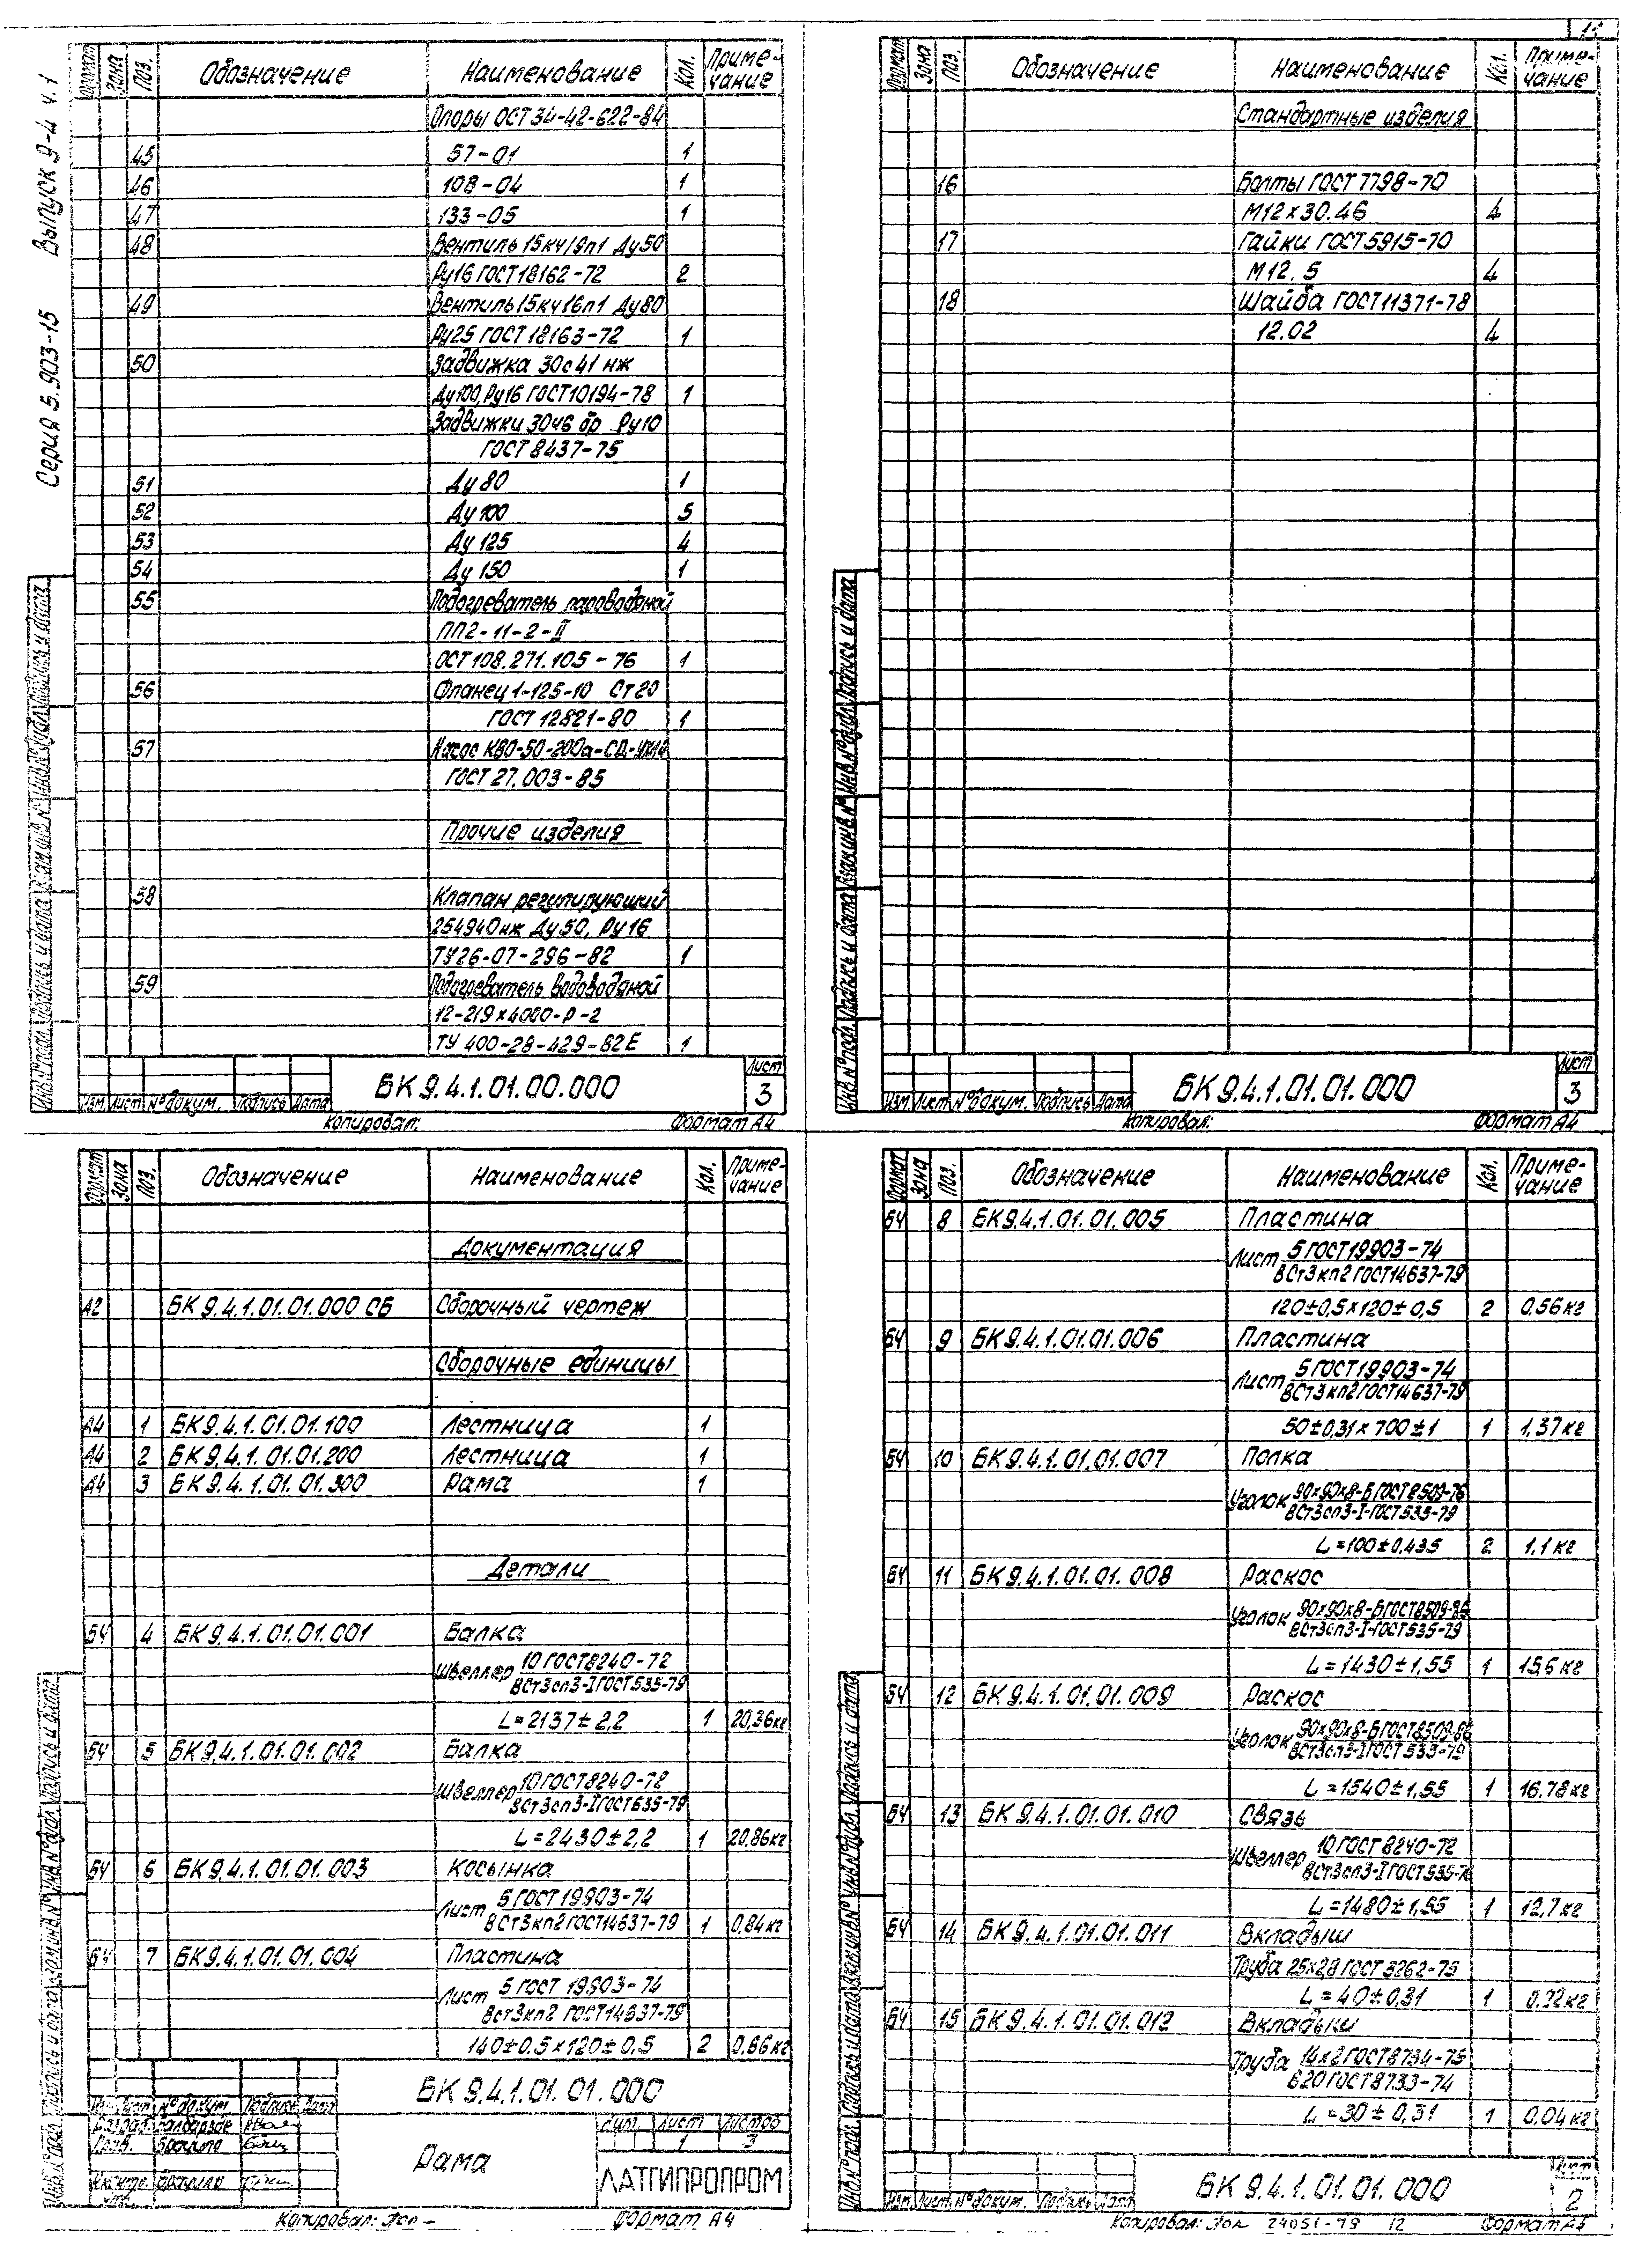 Серия 5.903-15 Выпуск 9-4 ч.1
Формат Зона Поз. Обозначение Наименование Кол. Приме-
чание
Опоры ОСТ 34-42-622-84
45 57-01 1
46 108-04 1
47 133-05 1
48 Вентиль 15кч19п1 Ду50
Ру16 ГОСТ 18162-72 2
49 Вентиль 15кч16п1 Ду80
Ру25 ГОСТ 18163-72 1
50 Задвижка 30с41 нж
Ду100, Ру16 ГОСТ10194-78 1
Задвижки 30ч6 бр Ру10
ГОСТ 8437-75
51 Ду 80 1
52 Ду 100 5
53 Ду 125 4
54 Ду 150 1
55 Подогреватель пароводяной
ПП2-11-2-II
ОСТ 108.271.105-76 1
56 Фланец 1-125-10 Ст20
ГОСТ 12821-80 1
57 Насос К80-50-200а-СД-
ГОСТ 27.003-85
Прочие изделия
58 Клапан регулирующий
25ч940нж Ду50, Ру16
ТУ26-07-296-82 1
59 Подогреватель водоводяной
12-219х4000-Р-2
ТУ 400-28-429-82Е 1
БК 9.4.1.01.00.000
Лист
3
Изм. Лист № докум. Подпись Дата
Инв.№ подл. Подпись и дата Взам.инв.№ Инв.№ дубл. Подпись и дата
Копировал: Формат А4
Формат Зона Поз. Обозначение Наименование Кол. Приме-
чание
Стандартные изделия
16 Болты ГОСТ 7798-70
М12х30.46 4
17 Гайки ГОСТ 5915-70
М12.5 4
18 Шайба ГОСТ 11371-78
12.02 4
БК 9.4.1.01.01.000
Лист
3
Изм. Лист № докум. Подпись Дата
Инв.№ подл. Подпись и дата Взам.инв.№ Инв.№ дубл. Подпись и дата
Копировал: Формат А4
Формат Зона Поз. Обозначение Наименование Кол. Приме-
чание
Документация
А2 БК 9.4.1.01.01.000 СБ Сборочный чертеж
Сборочные единицы
А4 1 БК 9.4.1.01.01.100 Лестница 1
А4 2 БК 9.4.1.01.01.200 Лестница 1
А4 3 БК 9.4.1.01.01.300 Рама 1
Детали
БЧ 4 БК 9.4.1.01.01.001 Балка
Швеллер 10 ГОСТ8240-72
ВСт3сп3-I ГОСТ 535-79
L=2137±2,2 1 20,36кг
БЧ 5 БК 9.4.1.01.01.002 Балка
Швеллер 10 ГОСТ8240-72
ВСт3сп3-I ГОСТ 535-79
L=2430±2,2 1 20,86кг
БЧ 6 БК 9.4.1.01.01.003 Косынка
Лист 5 ГОСТ 19903-74
ВСт3кп2 ГОСТ14637-79 1 0,84кг
БЧ 7 БК 9.4.1.01.01.004 Пластина
Лист 5 ГОСТ 19903-74
ВСт3кп2 ГОСТ14637-79
140±0,5х120±0,5 2 0,66кг
БК 9.4.1.01.01.000
Изм. Лист № докум. Подпись Дата
Разраб.
Пров.
Н.контр.
Утв.
Рама
Лит. Лист Листов
1 3
ЛАТГИПРОПРОМ
Инв.№ подл. Подпись и дата Взам.инв.№ Инв.№ дубл. Подпись и дата
Копировал: Формат А4
Формат Зона Поз. Обозначение Наименование Кол. Приме-
чание
БЧ 8 БК 9.4.1.01.01.005 Пластина
Лист 5 ГОСТ 19903-74
ВСт3кп2 ГОСТ14637-79
120±0,5х120±0,5 2 0,56кг
БЧ 9 БК 9.4.1.01.01.006 Пластина
Лист 5 ГОСТ 19903-74
ВСт3кп2 ГОСТ14637-79
50±0,31х700±1 1 1,37кг
БЧ 10 БК 9.4.1.01.01.007 Полка
Уголок 90х90х8-Б ГОСТ 8509-76
ВСт3сп3-I-ГОСТ 535-79
L=100±0,435 2 1,1кг
БЧ 11 БК 9.4.1.01.01.008 Раскос
Уголок 90х90х8-Б ГОСТ8509-86
ВСт3сп3-I-ГОСТ 535-79
L=1430±1,55 1 15,6кг
БЧ 12 БК 9.4.1.01.01.009 Раскос
Уголок 90х90х8-Б ГОСТ8509-86
ВСт3сп3-I ГОСТ 535-79
L=1540±1,55 1 16,78кг
БЧ 13 БК 9.4.1.01.01.010 Связь
Швеллер 10 ГОСТ 8240-72
ВСт3сп3-I ГОСТ 535-79
L=1480±1,55 1 12,7кг
БЧ 14 БК 9.4.1.01.01.011 Вкладыш
Труба 25х2,8 ГОСТ 3262-75
L=40±0,31 1
БЧ 15 БК 9.4.1.01.01.012 Вкладыш
Труба 14х2 ГОСТ 8734-75
В20 ГОСТ 8733-74
L=30±0,31 1 0,04кг
БК 9.4.1.01.01.000
Лист
2
Изм. Лист № докум. Подпись Дата
Инв.№ подл. Подпись и дата Взам.инв.№ Инв.№ дубл. Подпись и дата
Копировал: 24051-79 12 Формат